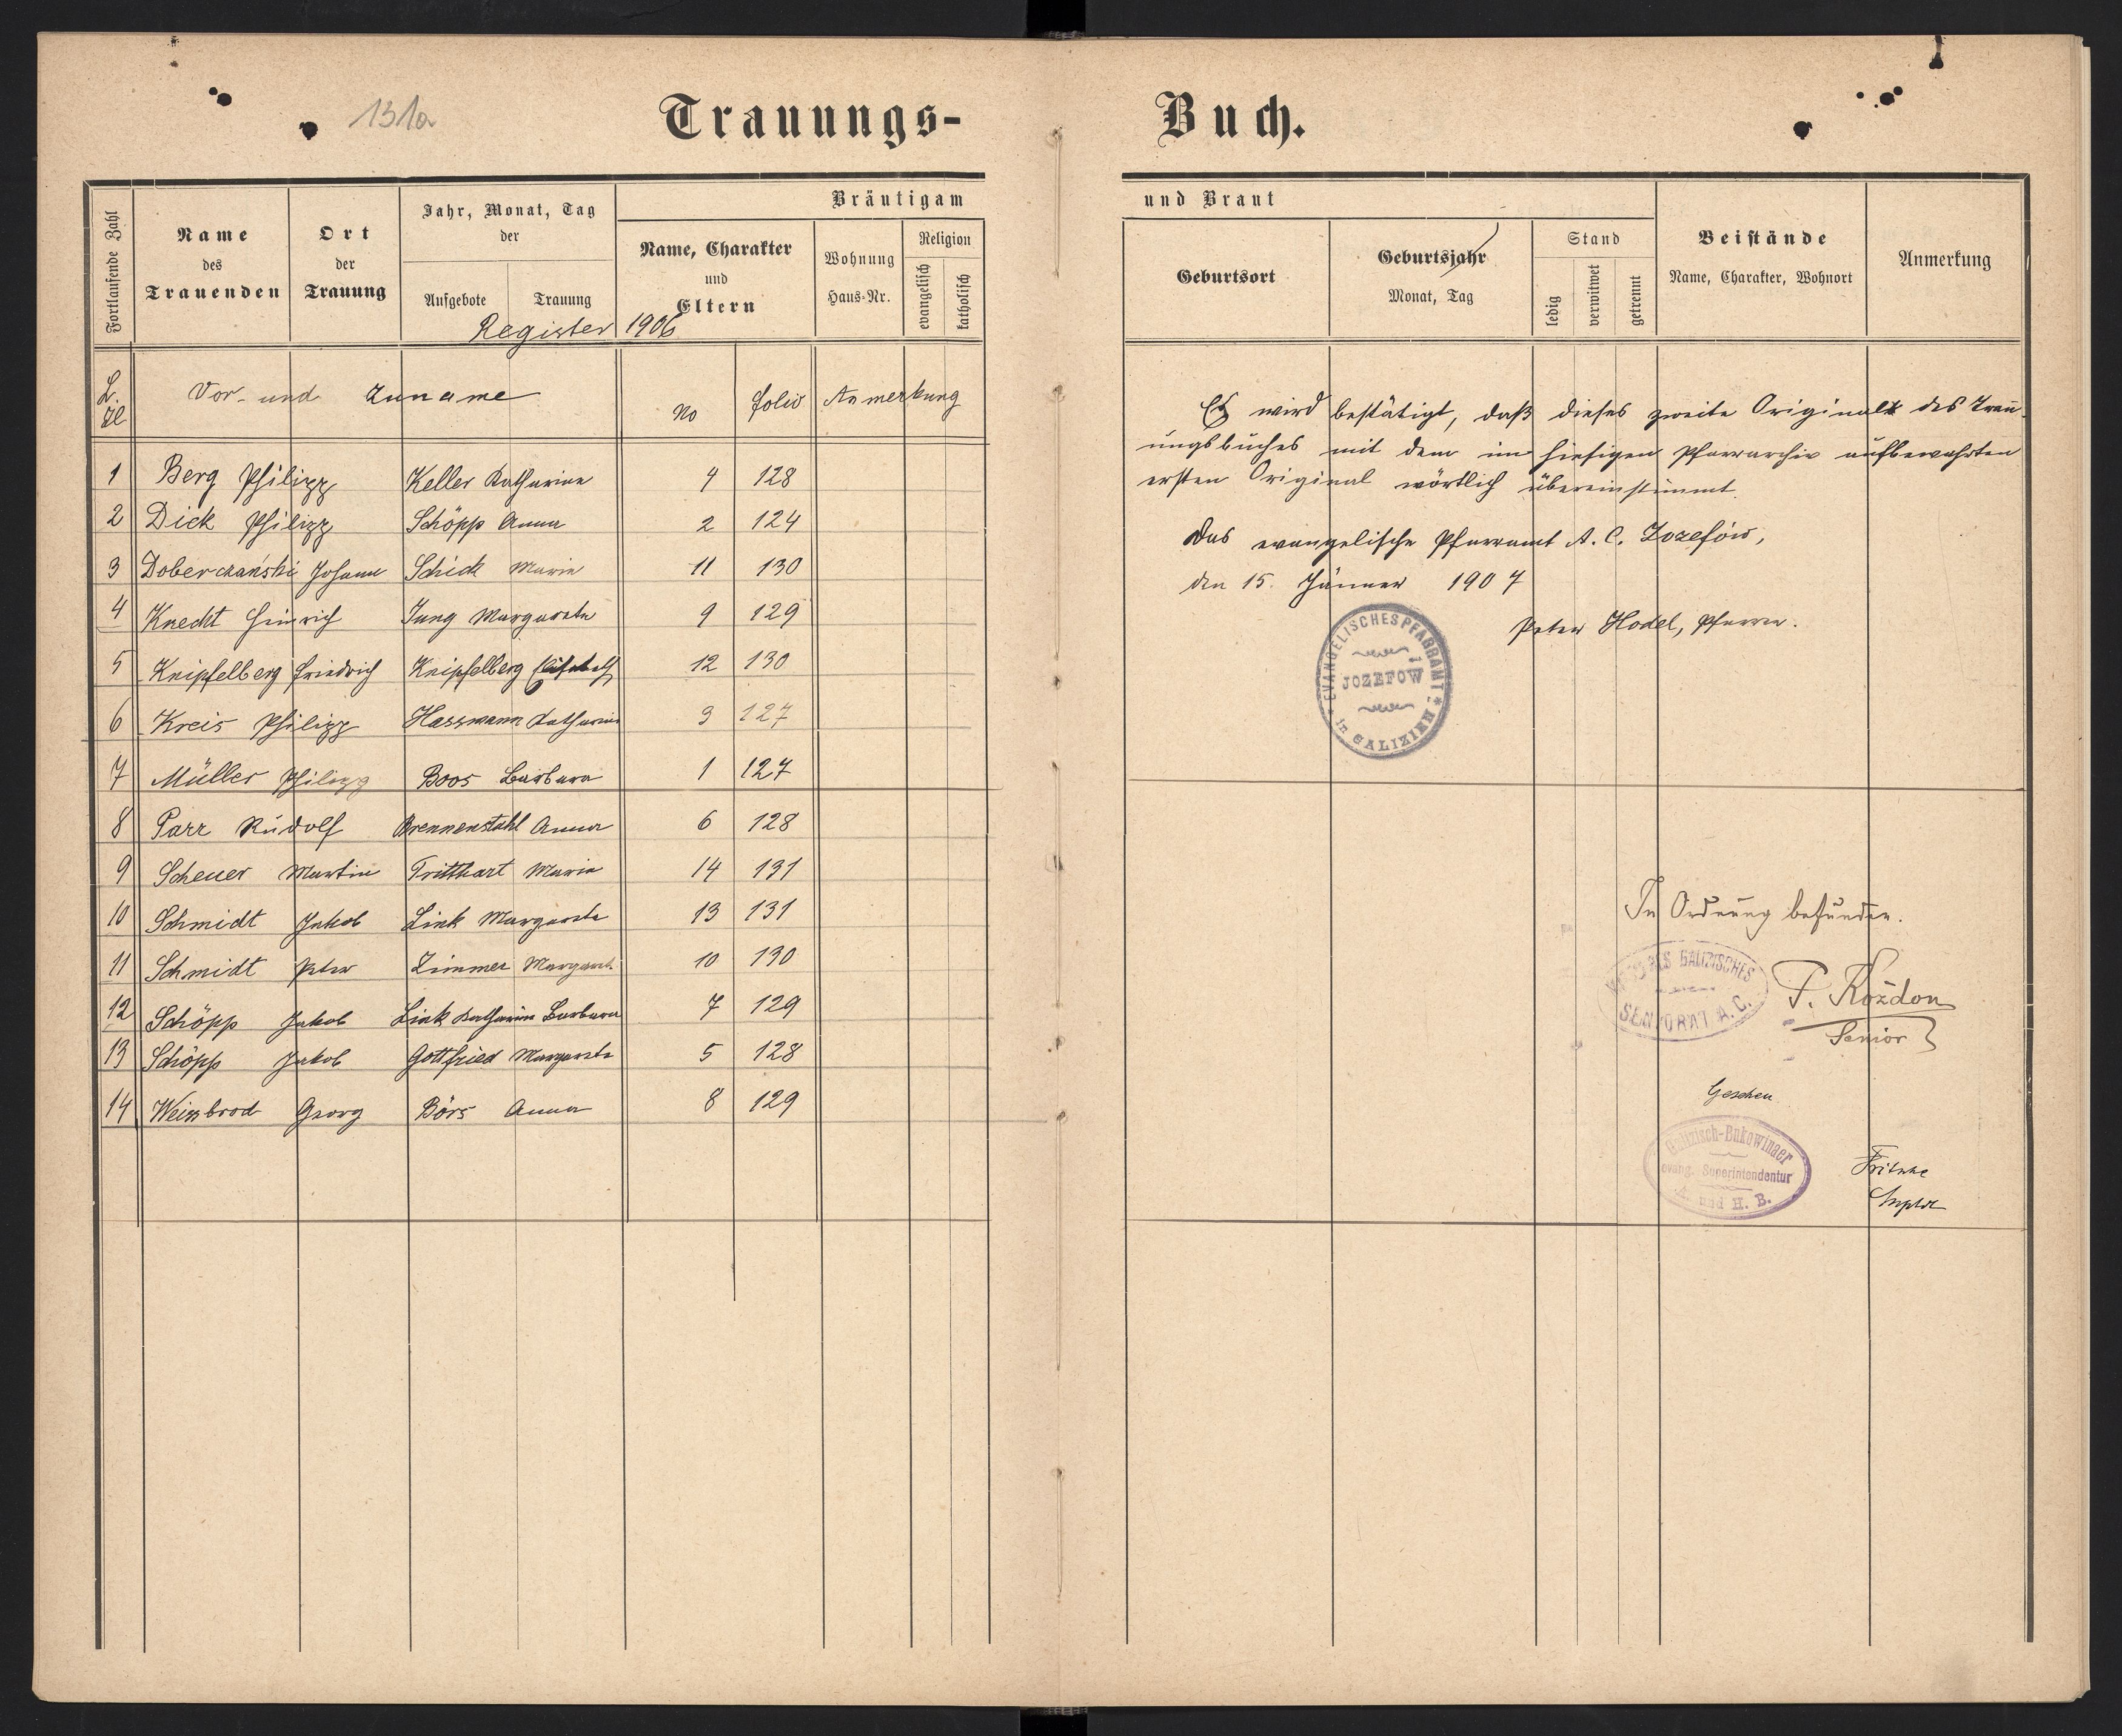 131a
Trauungs-
Fortlaufende Zahl
Name
des
Trauenden
Ort
der
Trauung
Jahr, Monat, Tag
der
Aufgebote
Trauung
Bräutigam
Name, Charakter
und
Eltern
Wohnung
Haus-Nr.
Religion
evangelisch
katholisch
Register 1906
L. Zl Vor- und Zuname No folio Anmerkung
1 Berg Philipp Keller Katharina 4 128
2 Dick Philipp Schöpp Anna 2 124
3 Doberczański Johann Schick Maria 11 130
4 Knecht Heinrich Jung Margareta 9 129
5 Knipfelberg Friedrich Knipfelberg Elisabeth 12 130
6 Kreis Philipp Hassmann Katharina 3 127
7 Müller Philipp Boos Barbara 1 127
8 Parr Rudolf Brennenstuhl Anna 6 128
9 Scheuer Martin Tritthart Maria 14 131
10 Schmidt Jakob Link Margareta 13 131
11 Schmidt Peter Zimmer Margareta 10 130
12 Schöpp Jakob Link Katharina Barbara 7 129
13 Schöpp Jakob Gottfried Margareta 5 128
14 Weissbrod Georg Börs Anna 8 129
Buch.
und Braut
Geburtsort
Geburtsjahr
Monat, Tag
Stand
ledig
verwitwet
getrennt
Beistände
Name, Charakter, Wohnort
Anmerkung
Es wird bestätigt, daß dieses zweite Original des Trau-
ungsbuches mit dem im hiesigen Pfarrarchiv aufbewahrten
ersten Original wörtlich übereinstimmt.
Das evangelische Pfarramt A. C. Jozefów,
den 15. Jänner 1907
Peter Hodel, Pfarrer.
EVANGELISCHES PFARRAMT
JOZEFOW
in GALIZIEN
In Ordnung befunden.
GALIZISCHES
SENIORAT A. C.
P. Rożdon
Senior
Gesehen
Galizisch-Bukowinaer
evang. Superintendentur
A. und H. B.
Fritsche
Suptdt